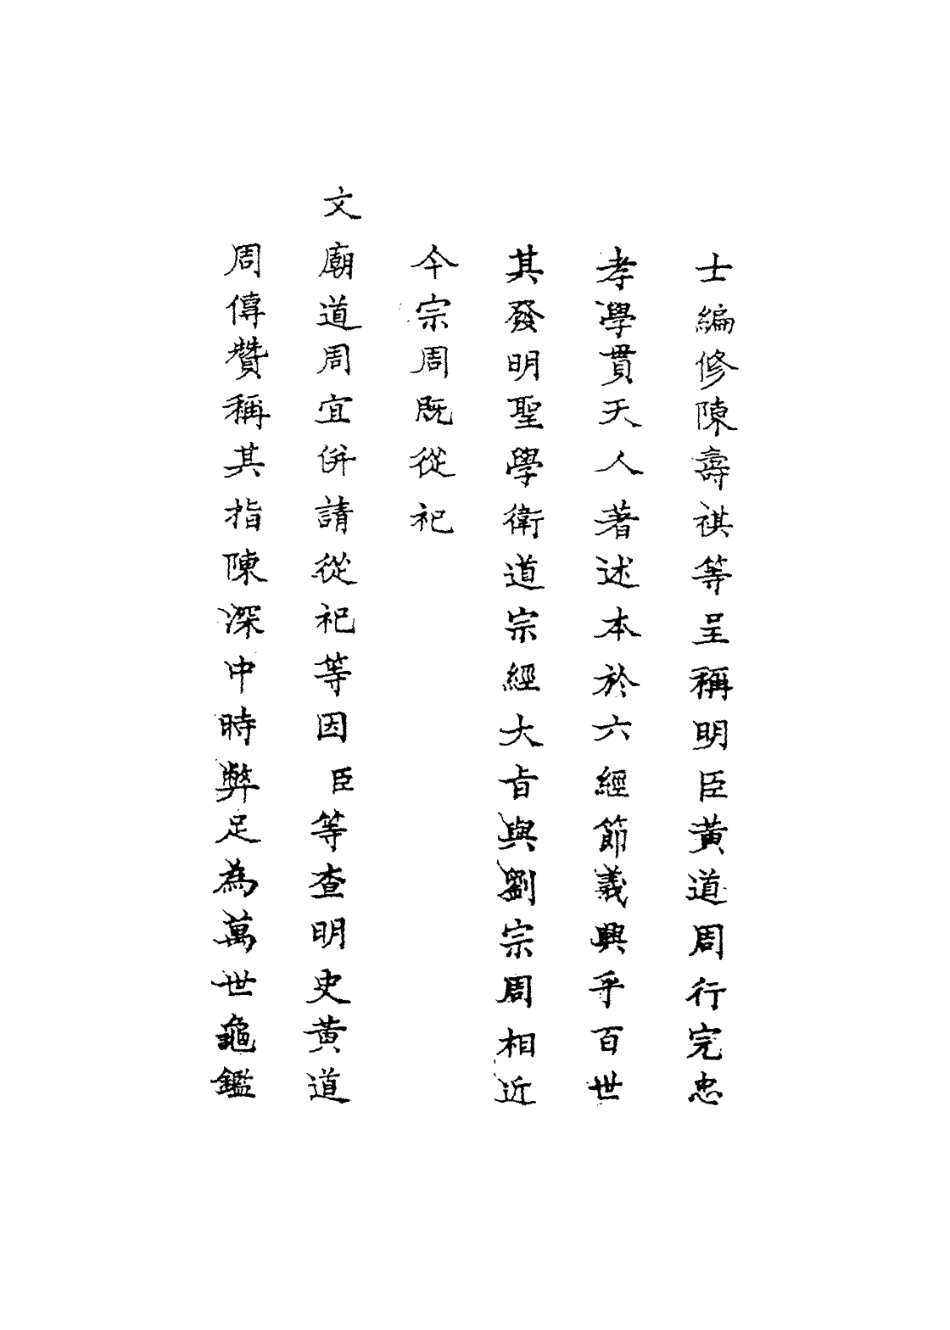 士編修陳壽祺等呈稱明臣黃道周行完忠
孝學貫天人著述本於六經節義興乎百世
其發明聖學衛道宗經大旨與劉宗周相近
今宗周既從祀
文廟道周宜併請從祀等因臣等查明史黃道
周傳贊稱其指陳深中時弊足為萬世龜鑑